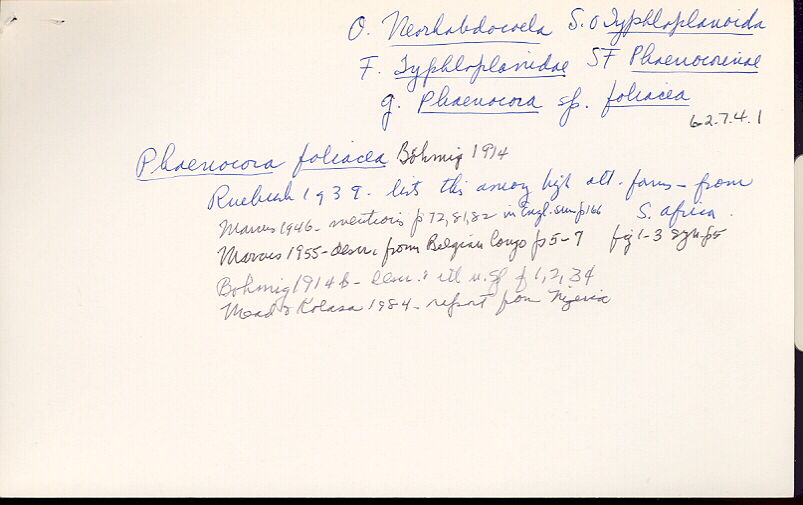 O. Neorhabdocoela S.O Typhloplanoida
F. Typhloplanidae SF Phaenocorinae
g. Phaenocora sp. foliacea
6.2.7.4.1
Phaenocora foliacea Böhmig 1914
Ruebush 1939. lists this among high alt. forms - from S. Africa.
Marcus 1946 - mentions p 72, 81, 82 in Engl. sum p 166
Marcus 1955 - descr. from Belgian Congo p 5-7 fig 1-3 syn p5
Böhmig 1914b - descr. f 1, 2, 34
Mead & Kolasa 1984 - report from Nigeria